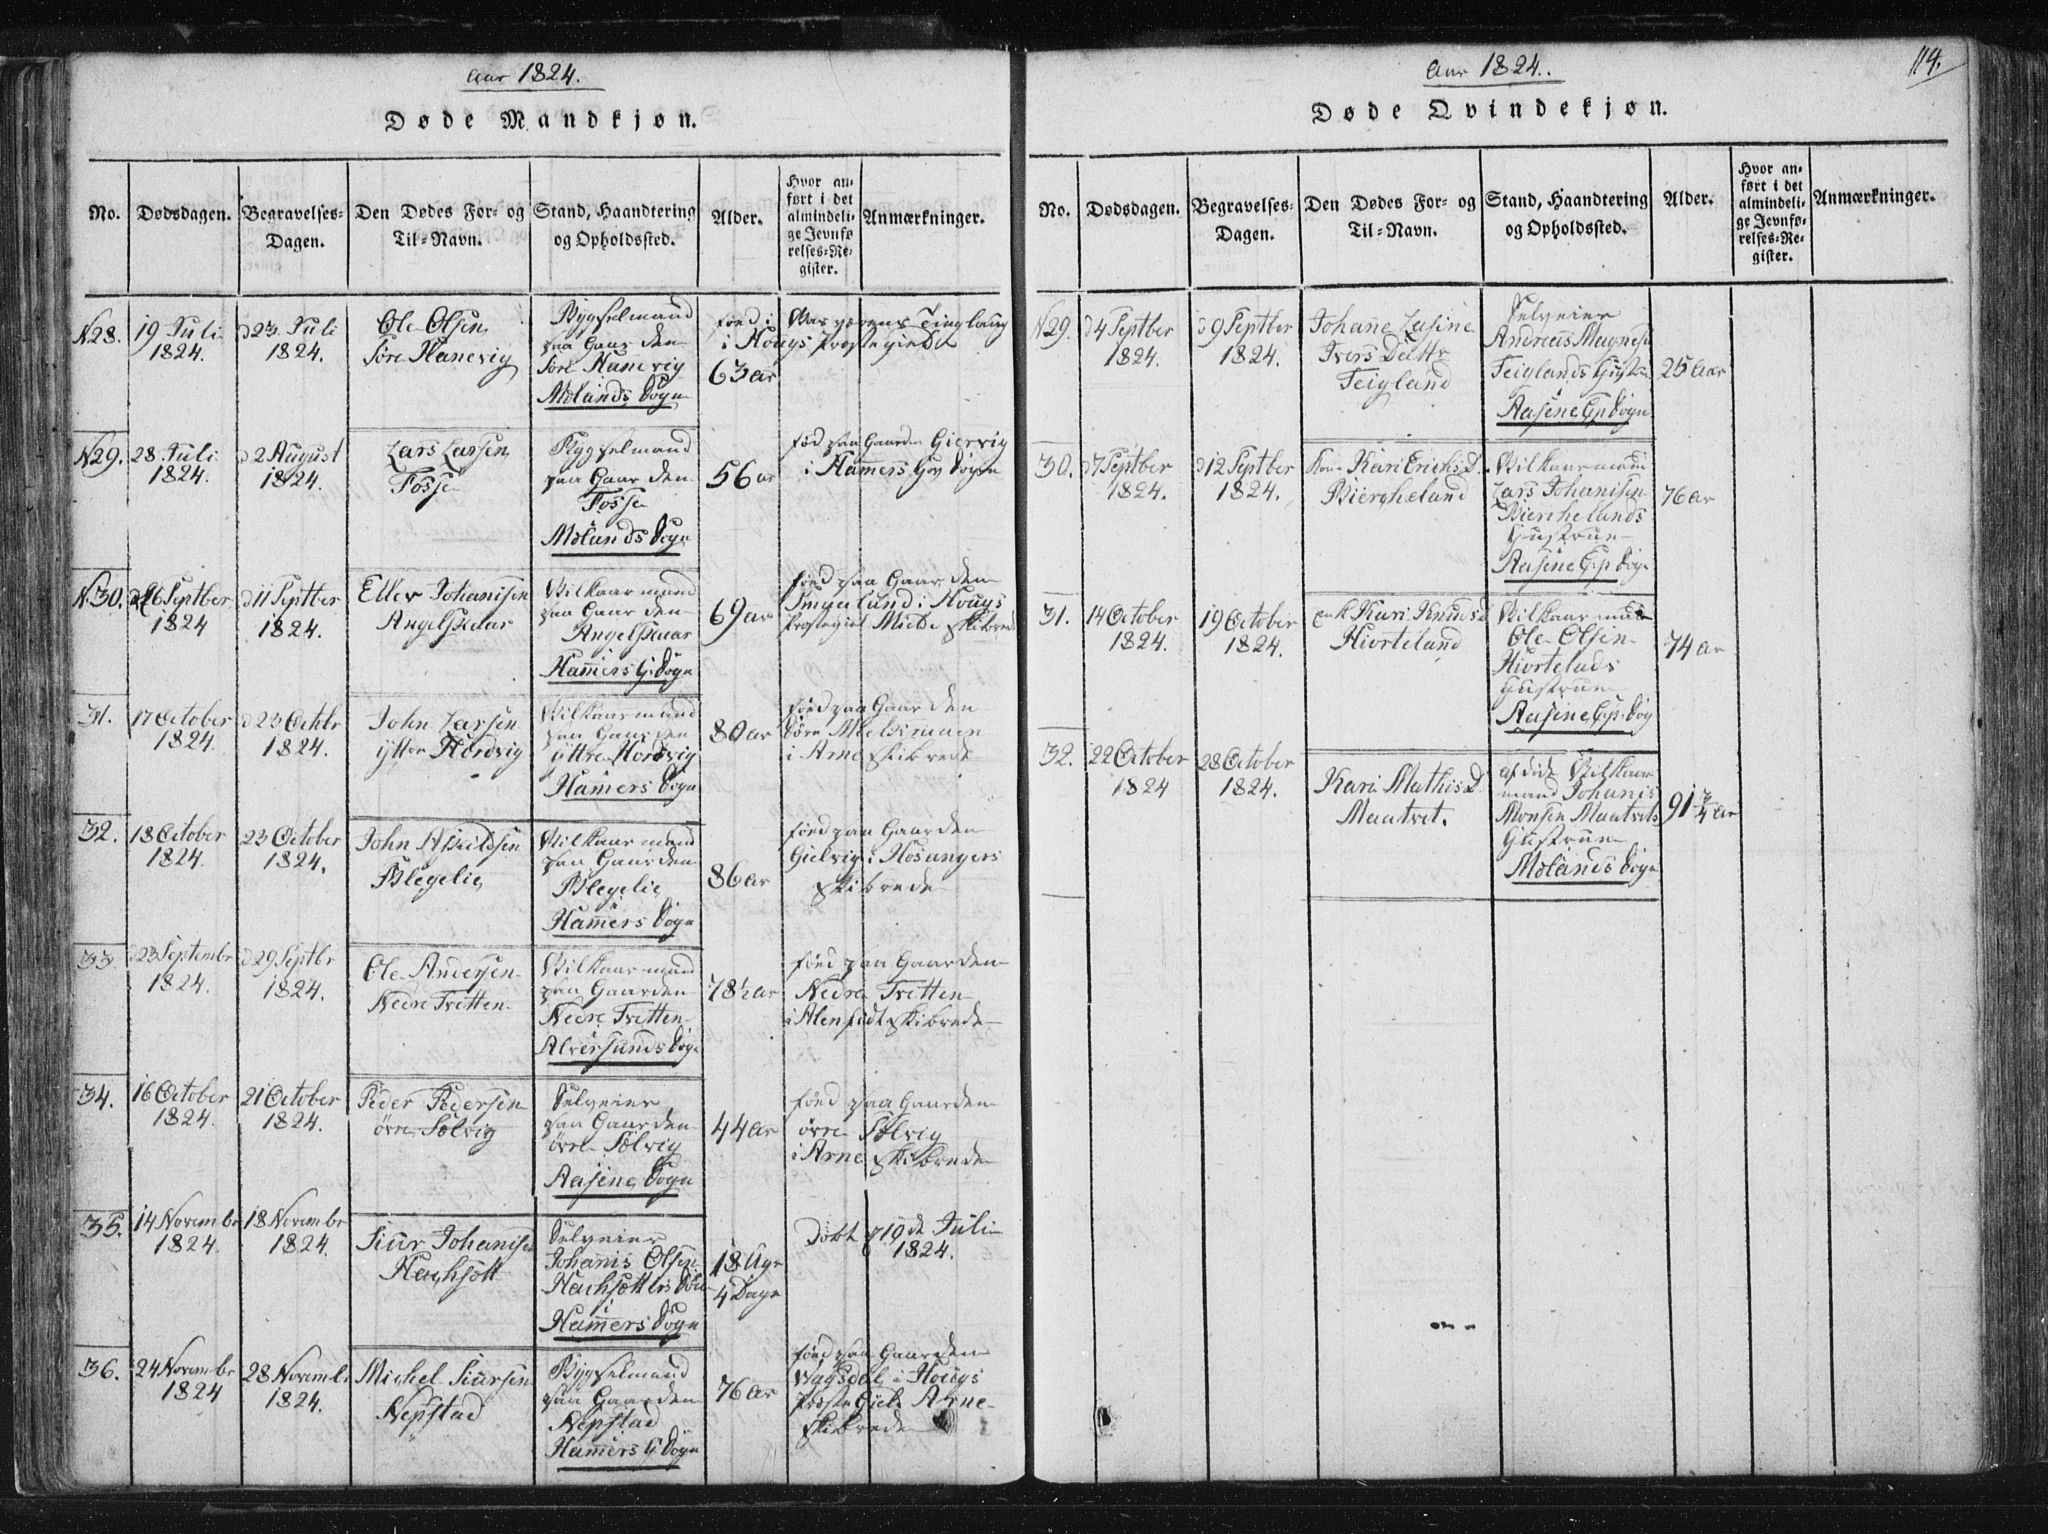 Aar 1824.
Døde Mandkjøn.
No.
Dødsdagen.
Begravelses-
Dagen.
Den Dødes For- og
Til-Navn.
Stand, Haandtering
og Opholdssted.
Alder.
Hvor an-
ført i det
almindeli-
ge Jevnfø-
relses-Re-
gister.
Anmærkninger.
N28.
19 Juli
1824.
d23 Juli
1824.
Ole Olsen
Søre Hanevig
Bygselmand
paa Gaarden
Søre Hanevig
Mølands Sogn
63 ar
føed i
i Hougs Prostegield
N29.
28 Juli
1824.
d2 August
1824.
Lars Larsen
Fosse
Bygselmand
paa Gaarden
Fosse
Mølands Sogn
56 ar
fød paa Gaarden Giervig
i Hamers Sogn
N30.
6 Septber
1824
d11 Septber
1824.
Eller Johanisen
Angelskaar
Vilkaarmand
paa Gaarden
Angelskaar
Hamers G. Sogn
69 ar
føed paa Gaarden
i Hougs
Skibrede
31.
17 October
1824.
d23 Octbr
1824.
John Larsen
yttre Hordvig
Vilkaarmand
paa Gaarden
yttre Hordvig
Hamers Sogn
80 ar
føed paa Gaarden
Søre
i Arne Skibrede
32.
18 October
1824.
23 October
1824.
John
Blegelie
Vilkaarmand
paa Gaarden
Blegelie
i
Hamers Sogn
86 ar
føed paa Gaarden
Gielvig i Hosangers
Skibrede
33
d23 Septembr
1824.
d29 Septbr
1824.
Ole Andersen
Nedre Tvetten
Vilkaarmand
paa Gaarden
Nedre Tvetten
Alversunds Sogn
78½ ar
føed paa Gaarden
Nedre Tvetten
i Alenfidt Skibrede
34.
16 October
1824.
21 October
1824.
Peder Pedersen
øvre Sælvig
Selveier
paa Gaarden
øvre Sælvig
Aasene Sogn
44 ar
føed paa Gaarden
øvre Sælvig
i Arne Skibrede
35.
14 Novembr
1824.
18 Novembr
1824.
Siur Johanisen
Hachsøtt
Selveier
Johanis Olsen
Hachsøtters Søn
i
Hamers Sogn
18 Uger
4 Dage
Døbt d 19de Juli
1824.
36.
24 Novembr
1824
28 Novemb
1824.
Michel Siursen
Nepstad
Bygselmand
paa Gaarden
Nepstad
Hamers G. Sogn
76 ar
føed paa Gaarden
Vagsdal i Hougs
Prostegield Arne
Skibrede
Aar 1824.
114.
Døde Qvindekjøn.
No.
Dødsdagen.
Begravelses-
Dagen.
Den Dødes For- og
Til-Navn.
Stand, Haandtering
og Opholdssted.
Alder.
Hvor an-
ført i det
almindeli-
ge Jevnfø-
relses-Re-
gister.
Anmærkninger.
N29.
d4 Septber
1824.
d9 Septber
1824.
Johane Lasine
Ivers Dattr
Feigland
Selveier
Andreas Magnesen
Feiglands Hustru
i
Aasene Sogn
25 Aar
30.
d7 Septber
1824.
d12 Septber
1824.
Kone Kari Erichs D
Biergheland
Vilkaarmand
Lars Johanisen
Bierghelands
Hustrue
Aasene Sogn
76 ar
31.
14 October
1824.
19 October
1824.
Enk Kari Knuds D
Hiorteland
Vilkaarmand
Ole Olsen
Hiortelads
Hustrue
Aasene Sog
74 ar
32.
22 October
1824
28 October
1824.
Kari Mathis D
Maatvet.
afdøde Vilkaar
mand Johanis
Monsen Maatvets
Hustrue
Mølands Sogn
91¾ ar